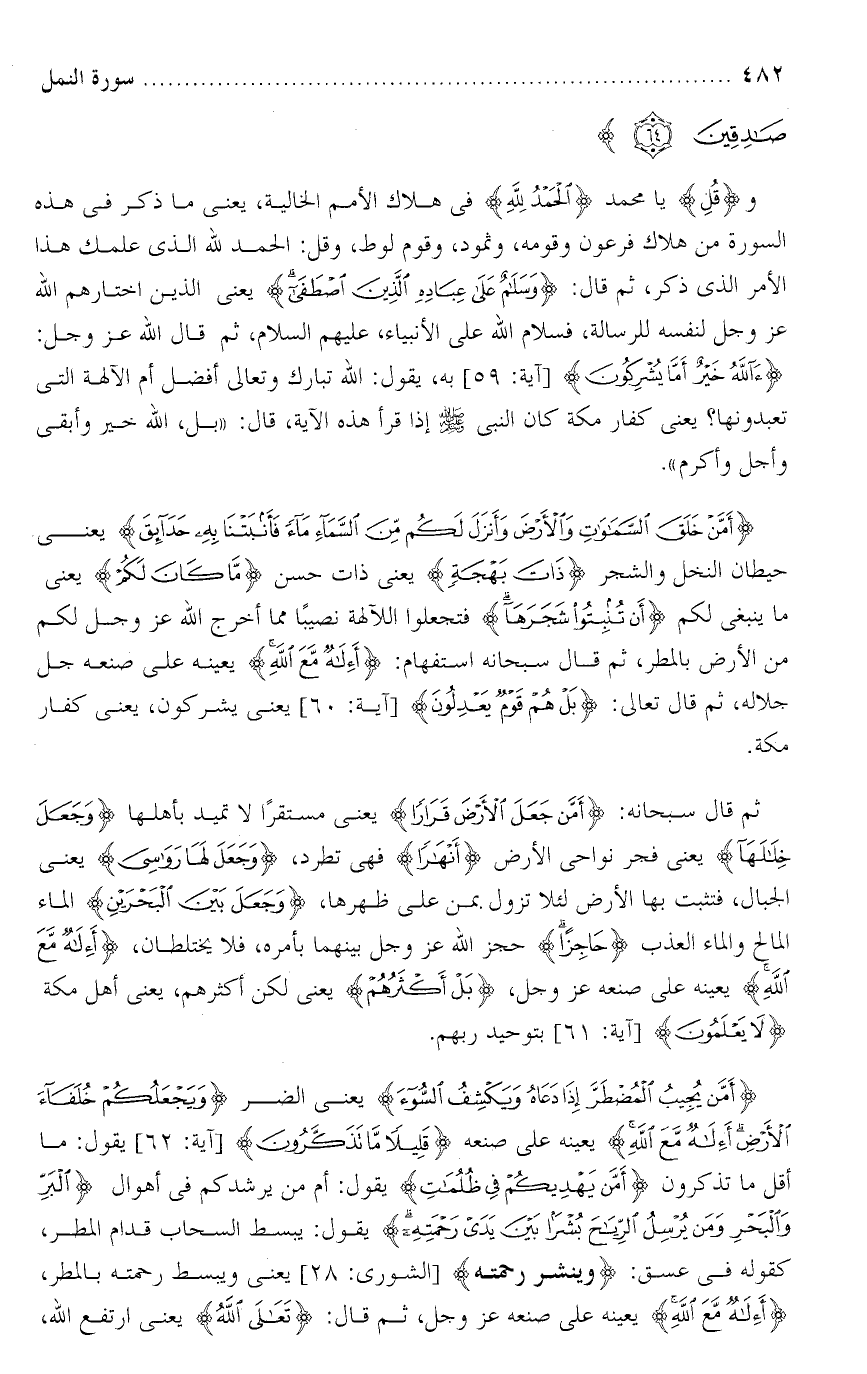 ٤٨٢ ................................................................ سورة النمل
صَـٰدِقِينَ ﴿٦٤﴾ ﴾
و ﴿قُلِ﴾ يا محمد ﴿ٱلْحَمْدُ لِلَّهِ﴾ فى هلاك الأمم الخالية، يعنى ما ذكر فى هذه
السورة من هلاك فرعون وقومه، وثمود، وقوم لوط، وقل: الحمد لله الذى علمك هذا
الأمر الذى ذكر، ثم قال: ﴿وَسَلَـٰمٌ عَلَىٰ عِبَادِهِ ٱلَّذِينَ ٱصْطَفَىٰٓ ۗ﴾ يعنى الذين اختارهم الله
عز وجل لنفسه للرسالة، فسلام الله على الأنبياء، عليهم السلام، ثم قال الله عز وجل:
﴿ءَآللَّهُ خَيْرٌ أَمَّا يُشْرِكُونَ﴾ [آية: ٥٩] به، يقول: الله تبارك وتعالى أفضل أم الآلهة التى
تعبدونها؟ يعنى كفار مكة كان النبى ﷺ إذا قرأ هذه الآية، قال: «بل، الله خير وأبقى
وأجل وأكرم».
﴿أَمَّنْ خَلَقَ ٱلسَّمَـٰوَٰتِ وَٱلْأَرْضَ وَأَنزَلَ لَكُم مِّنَ ٱلسَّمَآءِ مَآءً فَأَنۢبَتْنَا بِهِۦ حَدَآئِقَ﴾ يعنى
حيطان النخل والشجر ﴿ذَاتَ بَهْجَةٍ﴾ يعنى ذات حسن ﴿مَّا كَانَ لَكُمْ﴾ يعنى
ما ينبغى لكم ﴿أَن تُنۢبِتُوا۟ شَجَرَهَآ ۗ﴾ فتجعلوا اللآلهة نصيبًا مما أخرج الله عز وجل لكم
من الأرض بالمطر، ثم قال سبحانه استفهام: ﴿أَءِلَـٰهٌ مَّعَ ٱللَّهِ ۚ﴾ يعينه على صنعه جل
جلاله، ثم قال تعالى: ﴿بَلْ هُمْ قَوْمٌ يَعْدِلُونَ﴾ [آية: ٦٠] يعنى يشركون، يعنى كفار
مكة.
ثم قال سبحانه: ﴿أَمَّن جَعَلَ ٱلْأَرْضَ قَرَارًا﴾ يعنى مستقرًا لا تميد بأهلها ﴿وَجَعَلَ
خِلَـٰلَهَآ﴾ يعنى فجر نواحى الأرض ﴿أَنْهَـٰرًا﴾ فهى تطرد، ﴿وَجَعَلَ لَهَا رَوَٰسِىَ﴾ يعنى
الجبال، فتثبت بها الأرض لئلا تزول بمن على ظهرها، ﴿وَجَعَلَ بَيْنَ ٱلْبَحْرَيْنِ﴾ الماء
المالح والماء العذب ﴿حَاجِزًا ۗ﴾ حجز الله عز وجل بينهما بأمره، فلا يختلطان، ﴿أَءِلَـٰهٌ مَّعَ
ٱللَّهِ ۚ﴾ يعينه على صنعه عز وجل، ﴿بَلْ أَكْثَرُهُمْ﴾ يعنى لكن أكثرهم، يعنى أهل مكة
﴿لَا يَعْلَمُونَ﴾ [آية: ٦١] بتوحيد ربهم.
﴿أَمَّن يُجِيبُ ٱلْمُضْطَرَّ إِذَا دَعَاهُ وَيَكْشِفُ ٱلسُّوٓءَ﴾ يعنى الضر ﴿وَيَجْعَلُكُمْ خُلَفَآءَ
ٱلْأَرْضِ ۗ أَءِلَـٰهٌ مَّعَ ٱللَّهِ ۚ﴾ يعينه على صنعه ﴿قَلِيلًا مَّا تَذَكَّرُونَ﴾ [آية: ٦٢] يقول: ما
أقل ما تذكرون ﴿أَمَّن يَهْدِيكُمْ فِى ظُلُمَـٰتِ﴾ يقول: أم من يرشدكم فى أهوال ﴿ٱلْبَرِّ
وَٱلْبَحْرِ وَمَن يُرْسِلُ ٱلرِّيَـٰحَ بُشْرًۢا بَيْنَ يَدَىْ رَحْمَتِهِۦٓ ۗ﴾ يقول: يبسط السحاب قدام المطر،
كقوله فى عسق: ﴿وينشر رحمته﴾ [الشورى: ٢٨] يعنى ويبسط رحمته بالمطر،
﴿أَءِلَـٰهٌ مَّعَ ٱللَّهِ ۚ﴾ يعينه على صنعه عز وجل، ثم قال: ﴿تَعَـٰلَى ٱللَّهُ﴾ يعنى ارتفع الله،